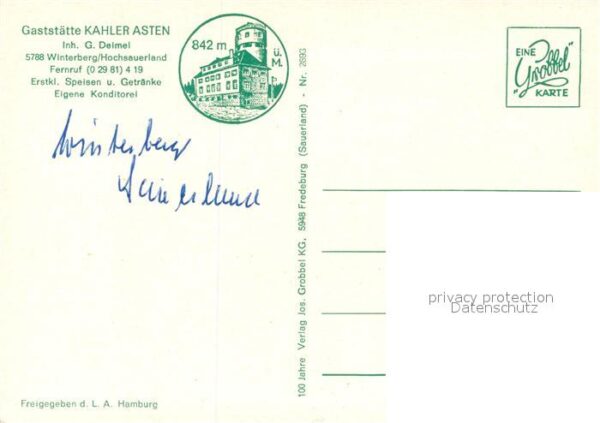 Gaststätte KAHLER ASTEN
Inh. G. Deimel
5788 Winterberg/Hochsauerland
Fernruf (0 29 81) 4 19
Erstkl. Speisen u. Getränke
Eigene Konditorei
842 m
ü.
M.
EINE
"Grobbel"
KARTE
Winterberg
Sauerland
100 Jahre Verlag Jos. Grobbel KG, 5948 Fredeburg (Sauerland) - Nr. 2893
privacy protection
Datenschutz
Freigegeben d. L. A. Hamburg